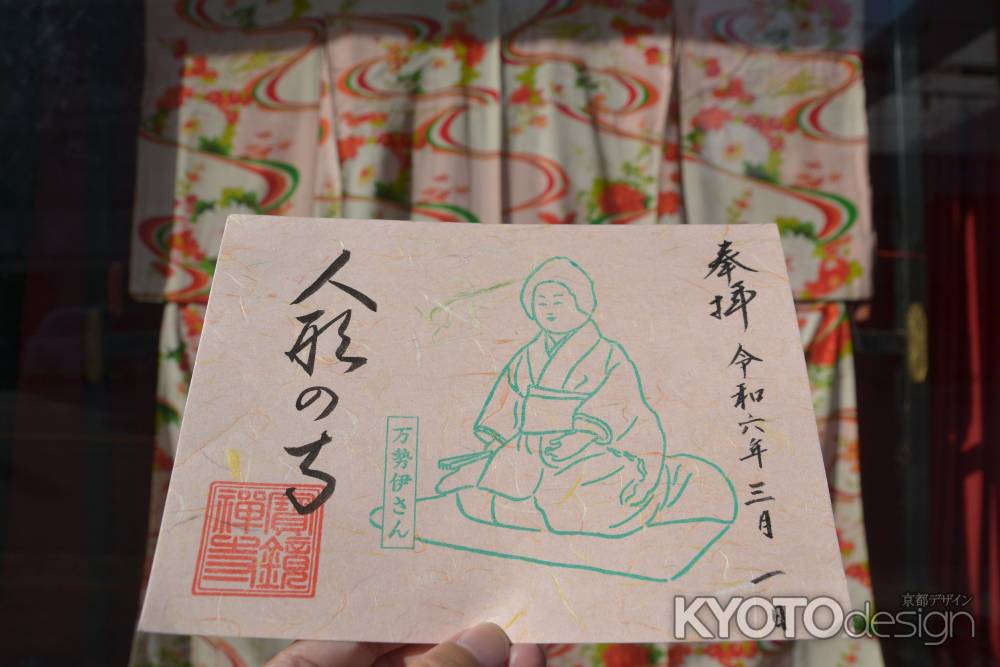 奉拝 令和六年 三月 一日
万勢伊さん
人形の寺
寶鏡禅寺
京都デザイン
KYOTOdesign